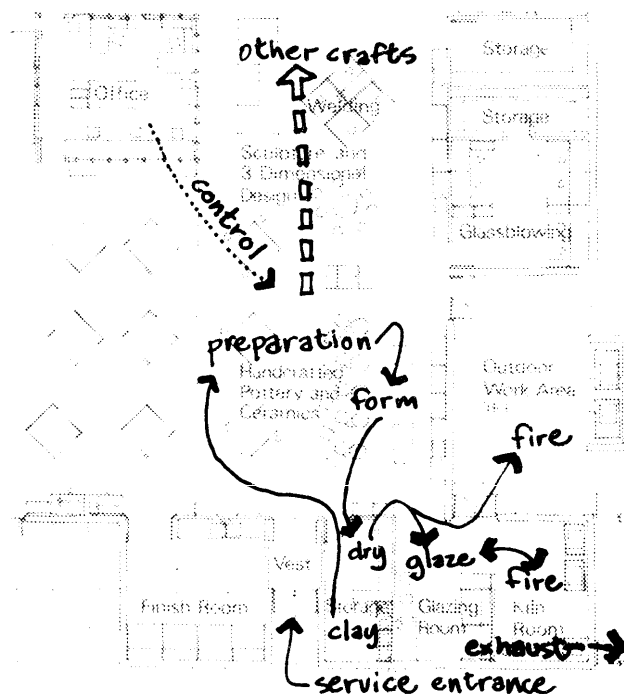 other crafts
Storage
Office
Welding
Storage
Sculpture and
3 Dimensional
Design
control
Glassblowing
preparation
Handcrafted
Pottery and
Ceramics
form
Outdoor
Work Area
fire
dry
glaze
Vest
fire
Finish Room
Storage
Glazing
Room
Kiln
Room
clay
exhaust
service entrance